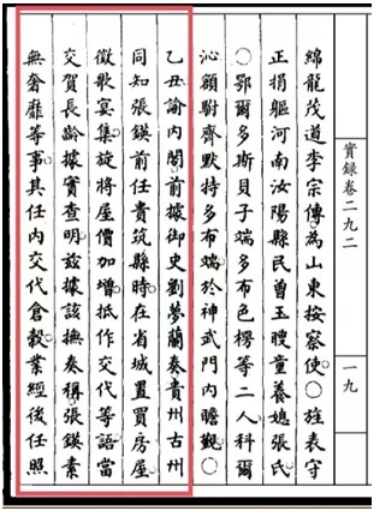 實録卷二九二
一九
綿龍茂道李宗傳。為山東按察使。○旌表守
正捐軀河南汝陽縣民曾玉聘童養媳張氏。
○鄂爾多斯貝子端多布色楞等二人。科爾
沁額駙齊默特多布端。於神武門内瞻覲。○
乙丑諭内閣。前據御史劉夢蘭奏貴州古州
同知張鍈前任貴筑縣時。在省城置買房屋。
徵歌宴集。旋將屋價加增。抵作交代等語。當
交賀長齡據實查明。茲據該撫奏稱。張鍈素
無奢靡等事。其任内交代倉穀。業經後任照